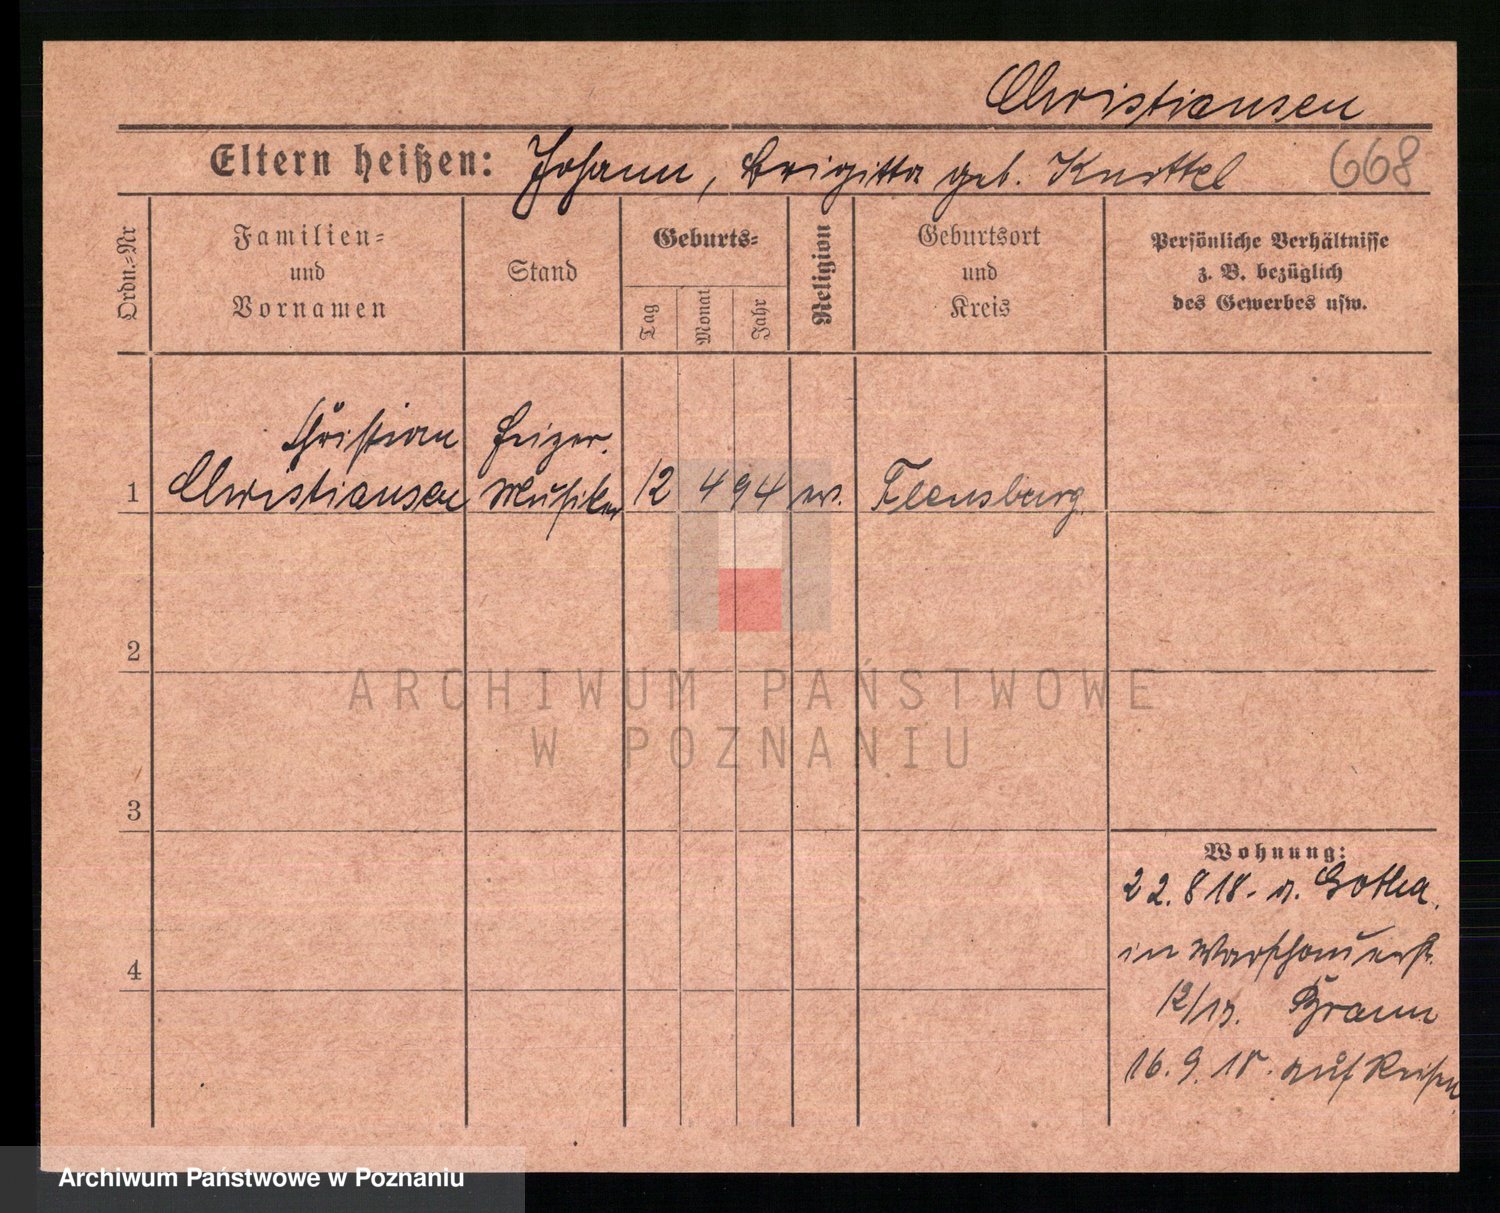 Christiansen
Eltern heißen: Johann, Brigitta geb. Knottel 668
Ordn.=Nr
Familien=
und
Vornamen
Stand
Geburts=
Tag
Monat
Jahr
Religion
Geburtsort
und
Kreis
Persönliche Verhältnisse
z. B. bezüglich
des Gewerbes usw.
Christian
1 Christiansen Musiker 12 4 94 ev. Flensburg
2
3
4
Wohnung:
22. 8 18. v. Gotha.
in Warschauerstr.
12/13. Braun
16. 9. 18. auf Reisen
ARCHIWUM PAŃSTWOWE
W POZNANIU
Archiwum Państwowe w Poznaniu